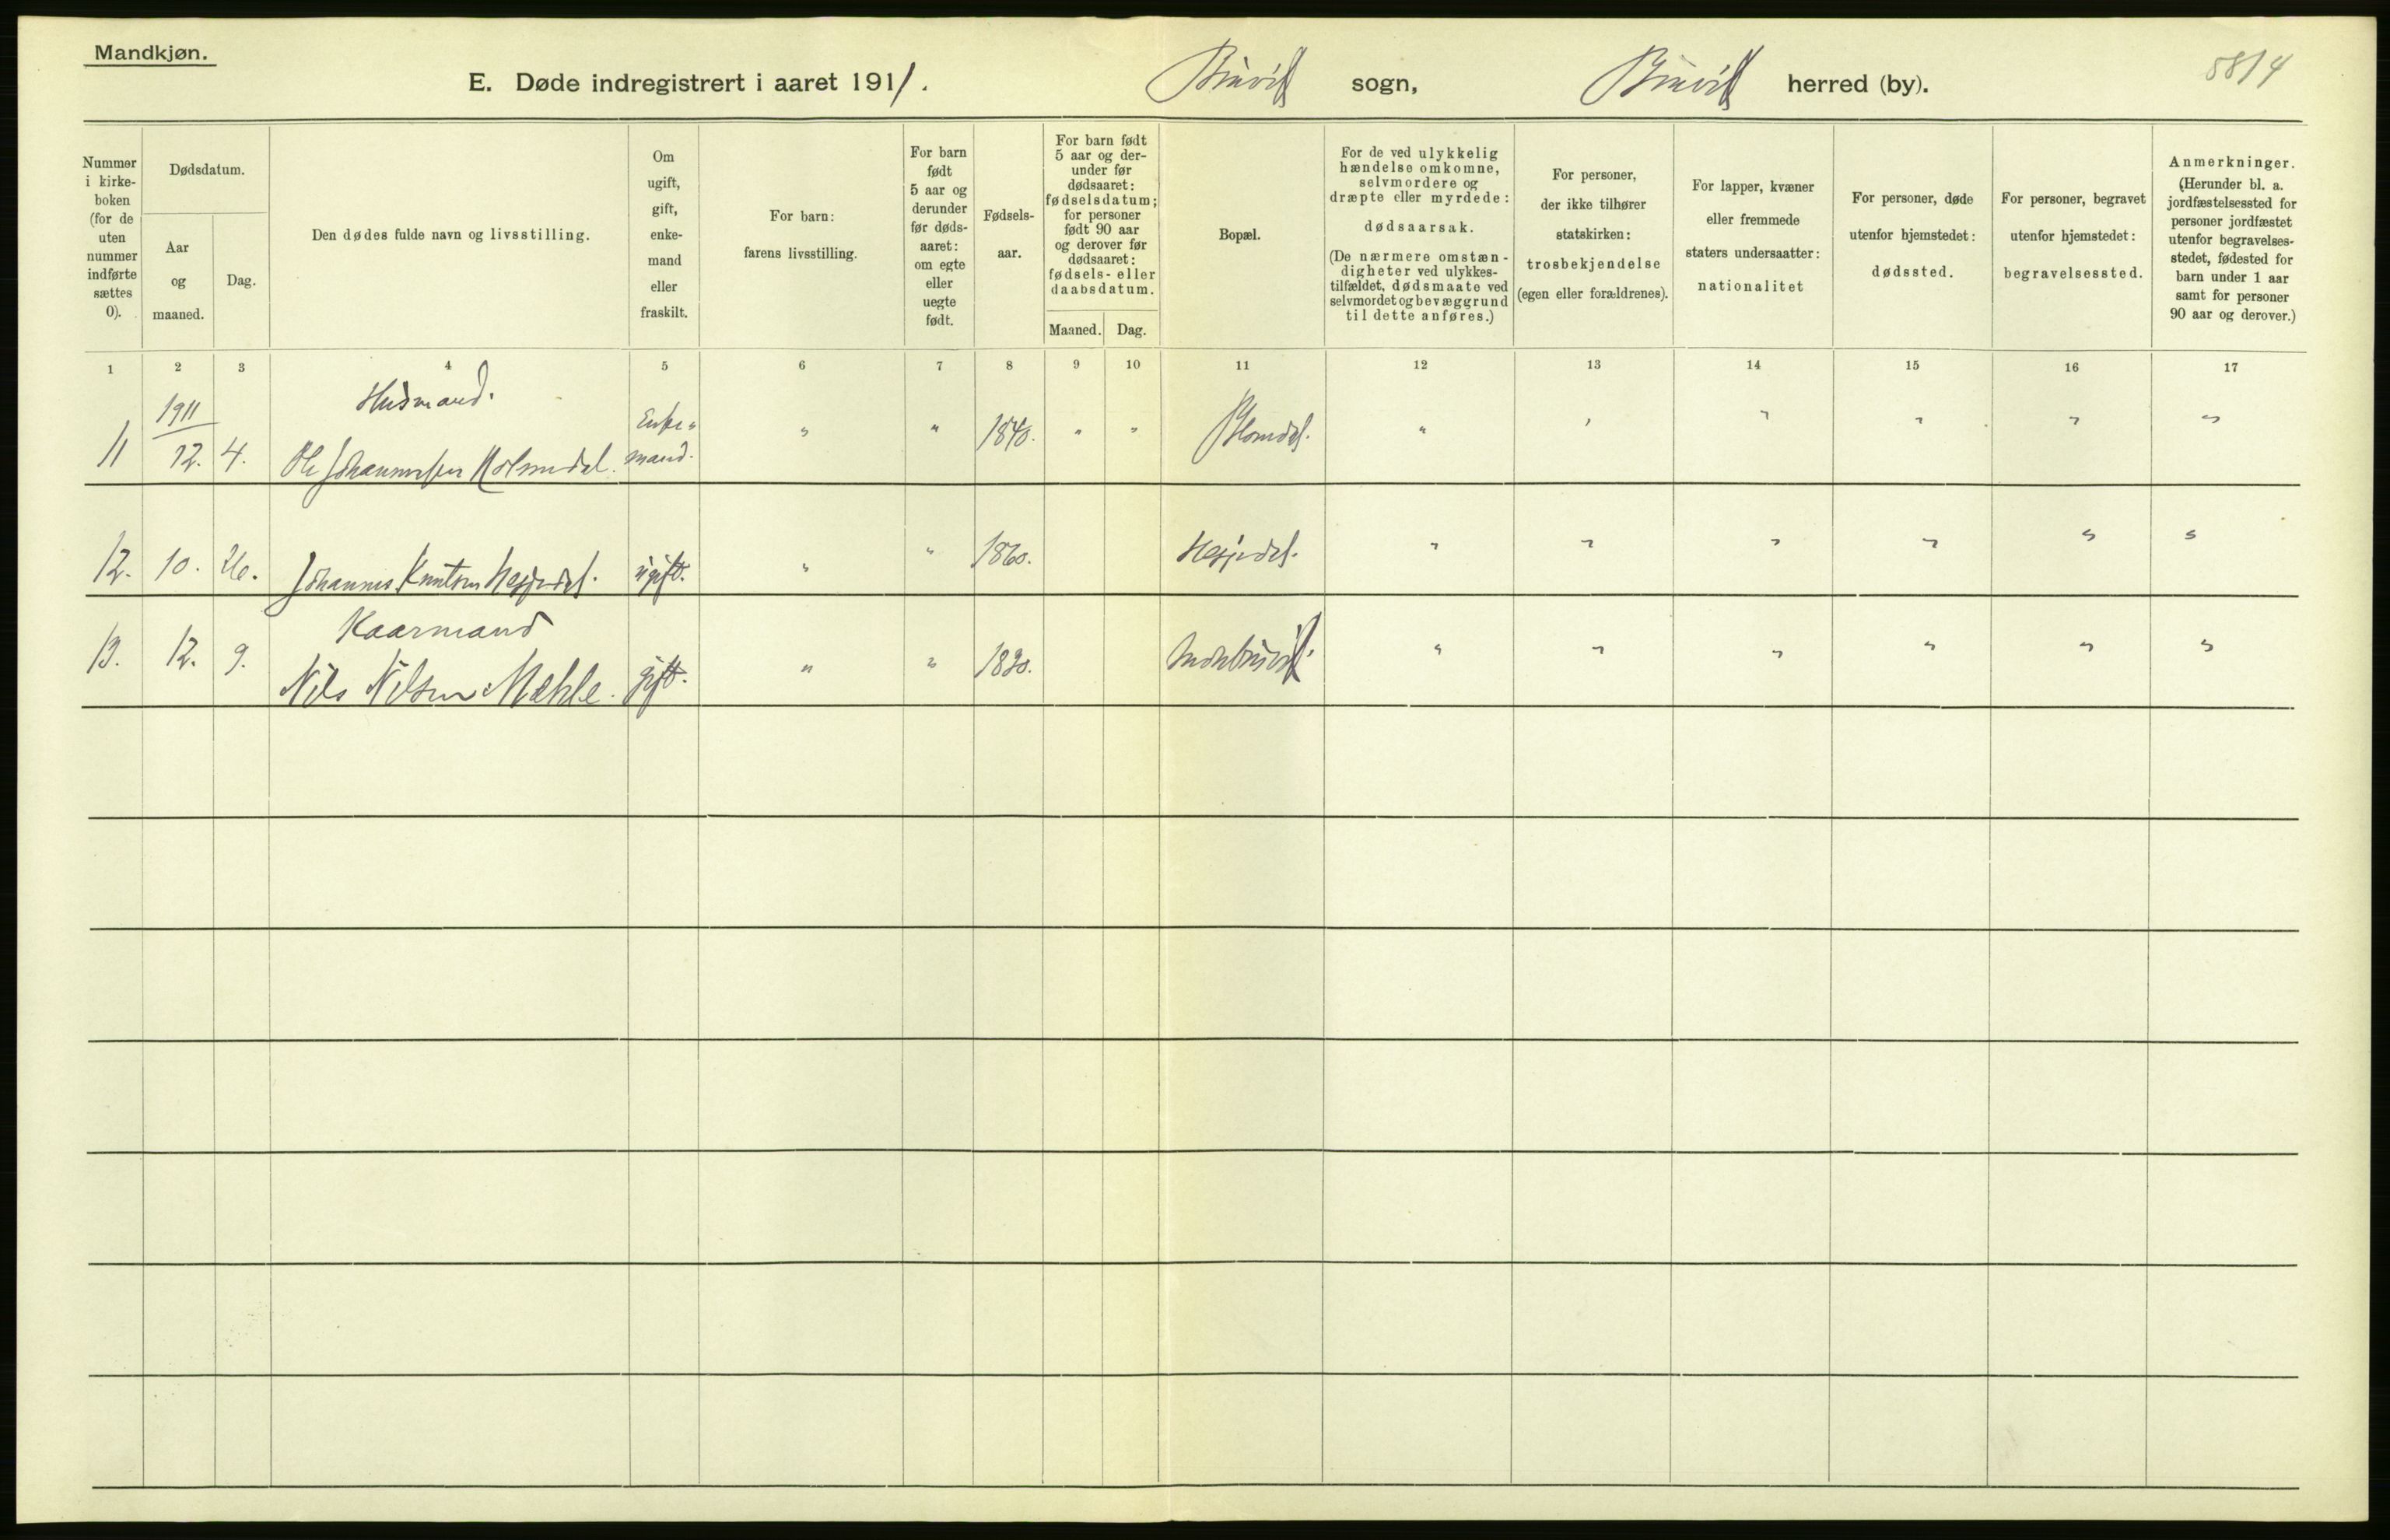 Mandkjøn.
E. Døde indregistrert i aaret 1911. Bruvik sogn, Bruvik herred (by). 5814
Nummer i kirkeboken (for de uten nummer indførte sættes 0).
Dødsdatum.
Aar og maaned.
Dag.
Den dødes fulde navn og livsstilling.
Om ugift, gift, enkemand eller fraskilt.
For barn: farens livsstilling.
For barn født 5 aar og derunder før dødsaaret: om egte eller uegte født.
Fødselsaar.
For barn født 5 aar og derunder før dødsaaret: fødselsdatum; for personer født 90 aar og derover før dødsaaret: fødsels- eller daabsdatum.
Maaned. Dag.
Bopæl.
For de ved ulykkelig hændelse omkomne, selvmordere og dræpte eller myrdede: dødsaarsak. (De nærmere omstændigheter ved ulykkestilfældet, dødsmaate ved selvmordet og bevæggrund til dette anføres.)
For personer, der ikke tilhører statskirken: trosbekjendelse (egen eller forældrenes).
For lapper, kvæner eller fremmede staters undersaatter: nationalitet
For personer, døde utenfor hjemstedet: dødssted.
For personer, begravet utenfor hjemstedet: begravelsessted.
Anmerkninger. (Herunder bl. a. jordfæstelsessted for personer jordfæstet utenfor begravelsesstedet, fødested for barn under 1 aar samt for personer 90 aar og derover.)
1 2 3 4 5 6 7 8 9 10 11 12 13 14 15 16 17
1911 Husmand.
11 12. 4. Ole Johannessen Enke= mand. " " 1840. " " " " " " " "
12. 10. 26. Johannes Knutsen Hesjedal. ugift. " " 1860. Hesjedal. " " " " " "
Kaarmand
13. 12. 9. Nils Nilsen Mæhle. gift. " " 1830. " " " " " "